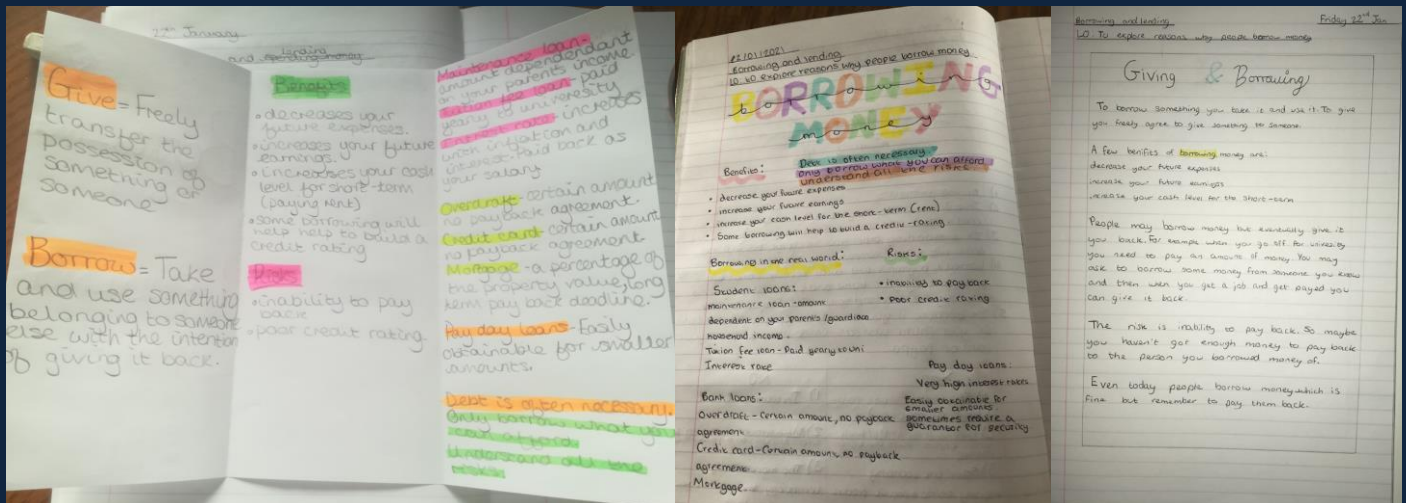 22nd January
lending
and spending money
Give = Freely
transfer the
possession of
something or
someone
Borrow = Take
and use something
belonging to someone
else with the intention
of giving it back.
Benefits
• decreases your
future expenses.
• increases your future
earnings.
• increases your cash
level for short-term
(paying rent)
• some borrowing will
help help to build a
credit rating
Risks
• inability to pay
back
• poor credit rating.
Maintenance loan-
amount dependant
on your parents income.
Tuition fee loan - paid
yearly to university
Interest rates - increases
with inflation and
interest. Paid back as
your salary
Overdraft - certain amount
no payback agreement.
Credit card - certain amount
no payback agreement
Mortgage - a percentage of
the property value, long
term pay back deadline.
Pay day loans - Easily
obtainable for smaller
amounts.
Debt is often necessary.
Only borrow what you
can afford
Understand all the
risks
22/01/2021
Borrowing and lending
LO to explore reasons why people borrow money
BORROWING
borrowing
MONEY
money
Debt is often necessary
only borrow what you can afford
understand all the risks
Benefits:
• decrease your future expenses
• increase your future earnings
• increase your cash level for the short-term (rent)
• Some borrowing will help to build a credit-rating
Borrowing in the real world:
Risks:
• inability to pay back
• Poor credit rating
Student loans:
maintenance loan-amount
dependent on your parents/guardians
household income.
Tution fee loan - Paid yearly to uni
Interest rate
Pay day loans:
Very high interest rates
Easily obtainable for
smaller amounts.
sometimes require a
guarantor for security
Bank loans:
Overdraft - Certain amount, no payback
agreement
Credit card - Certain amount, no payback
agreement.
Mortgage.
Borrowing and lending
Friday 22nd Jan
LO: To explore reasons why people borrow money
Giving & Borrowing
To borrow something you take it and use it. To give
you freely agree to give something to someone.
A few benifits of borrowing money are:
decrease your future expenses
increase your future earnings
increase your cash level for the short-term
People may borrow money but eventually give it
you back. For example when you go off for univesity
you need to pay an amount of money. You may
ask to borrow some money from someone you know
and then when you get a job and get payed you
can give it back.
The risk is inability to pay back. So maybe
you haven't got enough money to pay back
to the person you borrowed money of.
Even today people borrow money which is
fine but remember to pay them back.